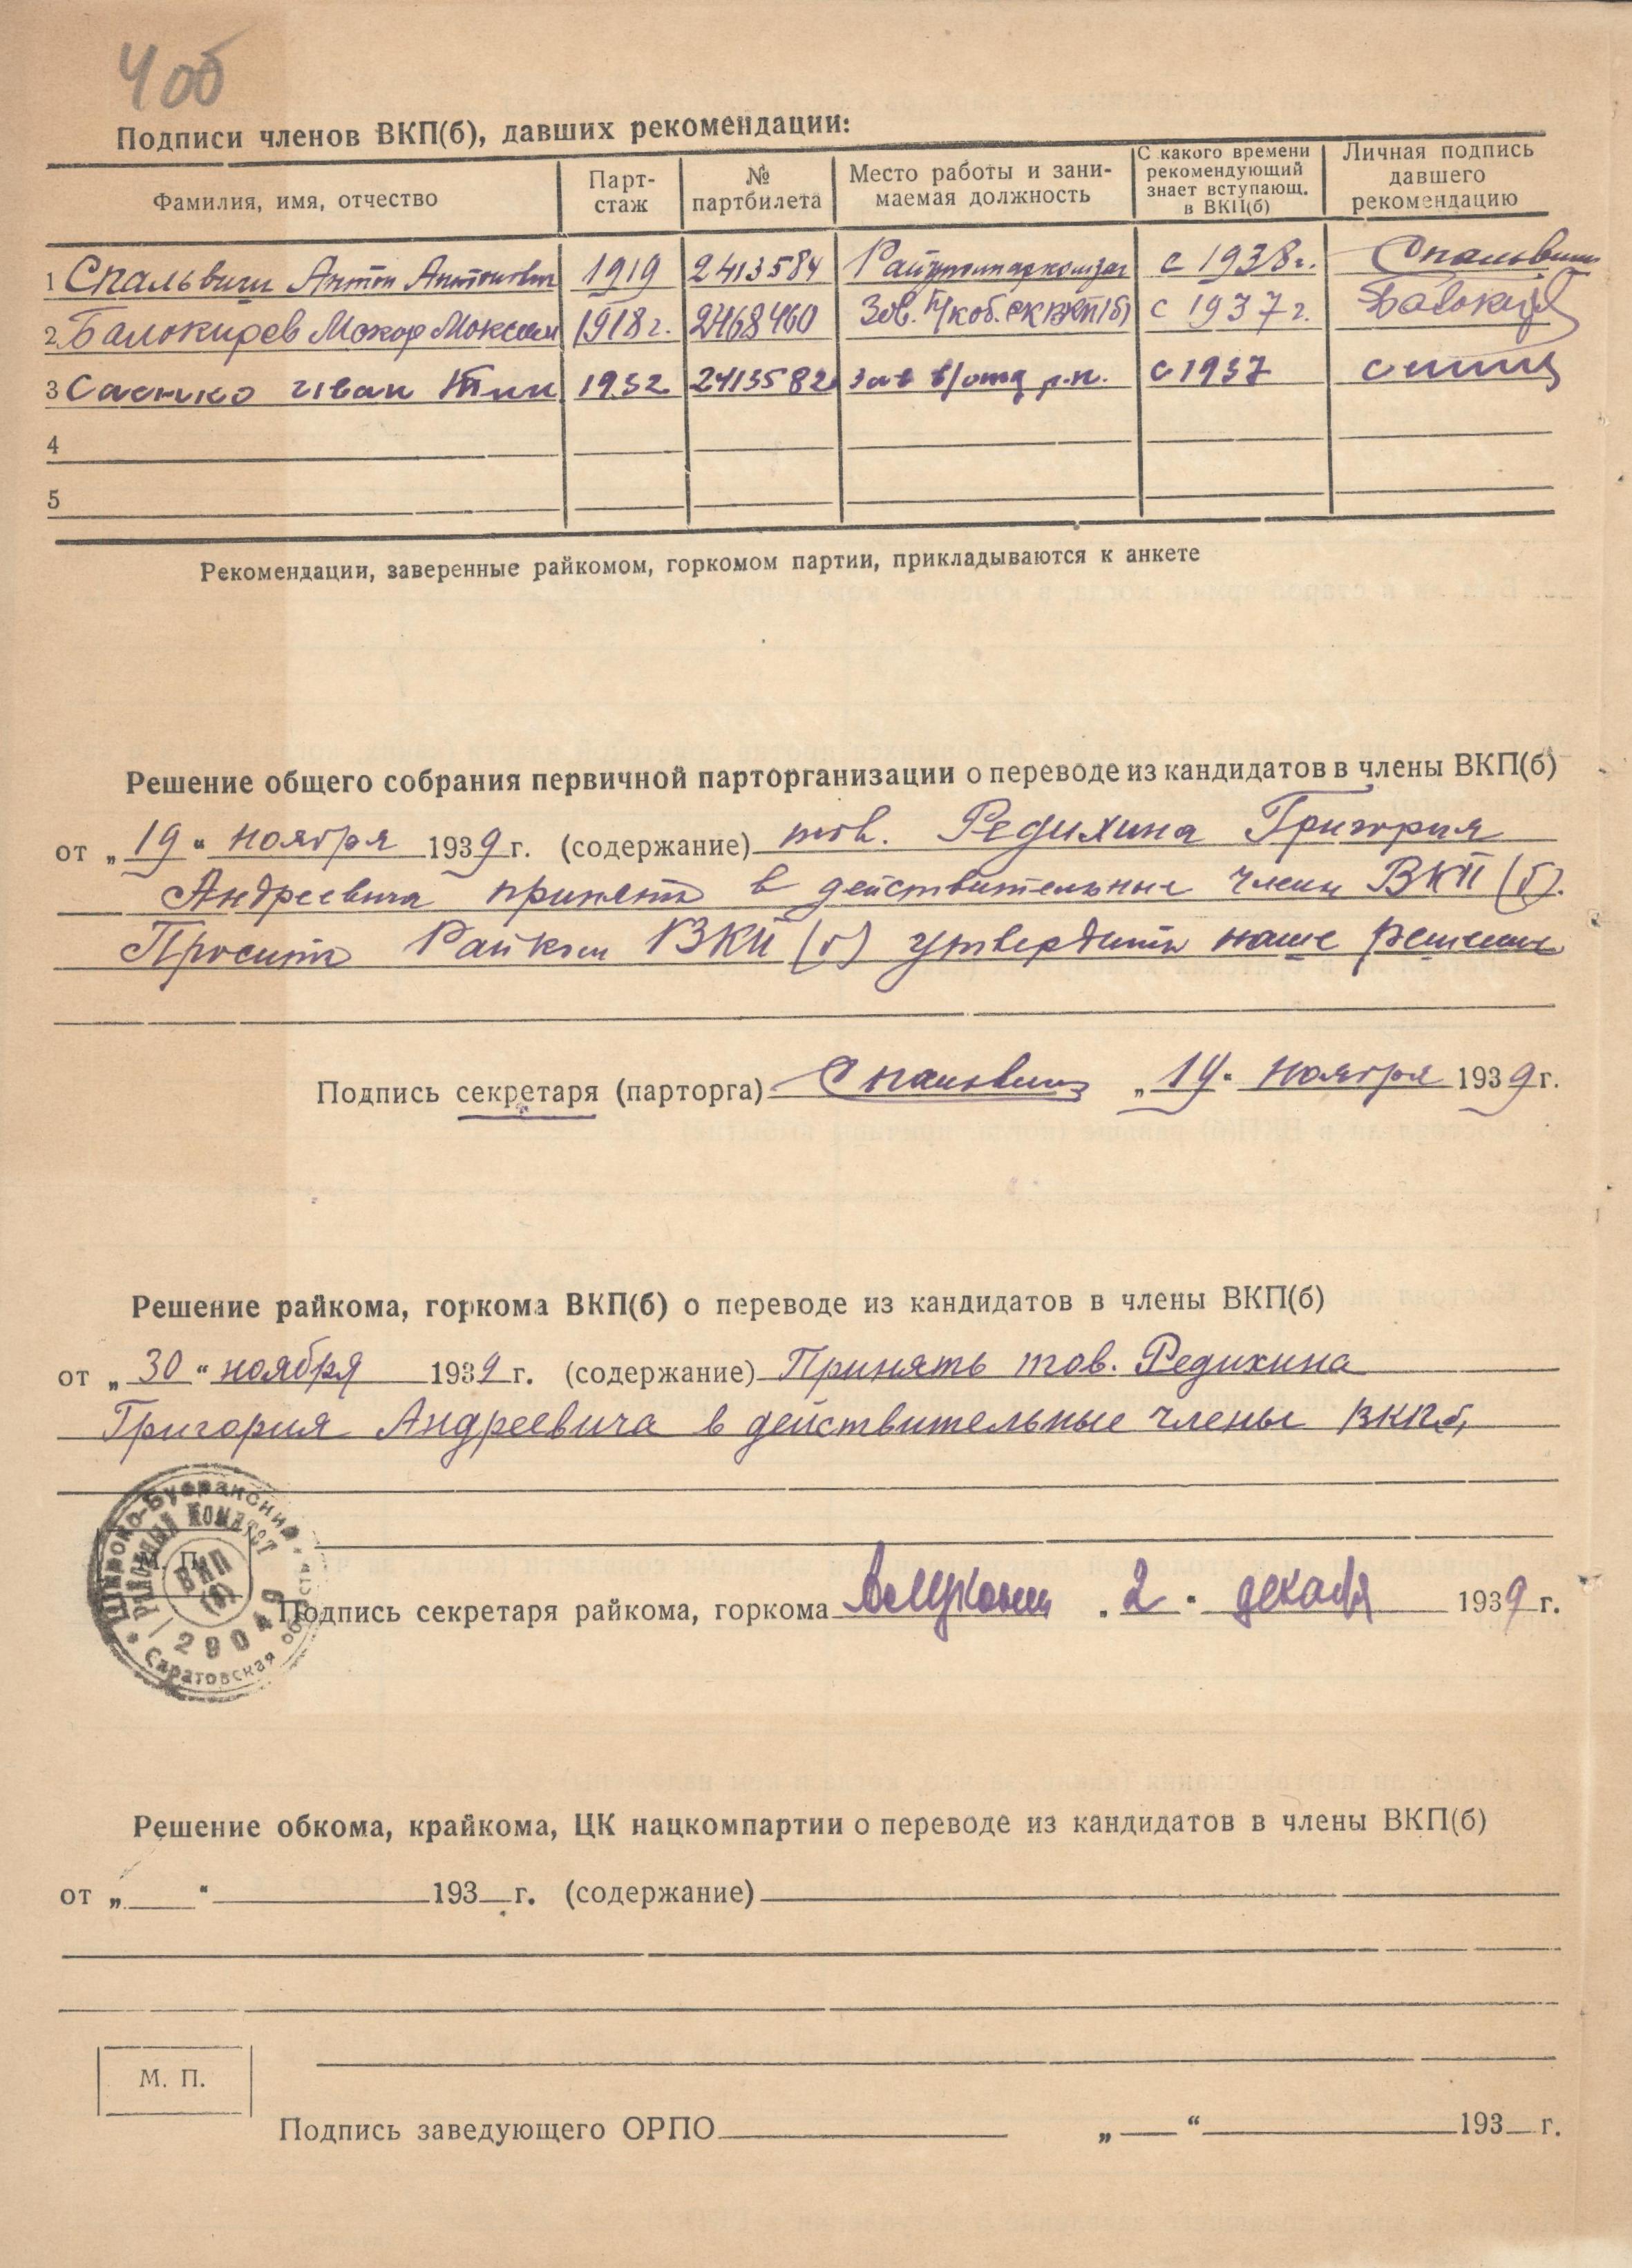 4 об
Подписи членов ВКП(б), давших рекомендации:
Фамилия, имя, отчество
Парт-
стаж
№
партбилета
Место работы и зани-
маемая должность
С какого времени
рекомендующий
знает вступающ.
в ВКП(б)
Личная подпись
давшего
рекомендацию
1 Спальвин Антон Антонович 1919 2413584 с 1938 г. Спальвин
2 Балокирев Макар 1918 г. 2468460 Зав. п/каб. РК ВКП(б) с 1937 г.
3 Иван 1932 2413582 зав в/отд р.к. с 1937
4
5
Рекомендации, заверенные райкомом, горкомом партии, прикладываются к анкете
Решение общего собрания первичной парторганизации о переводе из кандидатов в члены ВКП(б)
от „19“ ноября 1939 г. (содержание) тов. Редихина Григория
Андреевича принять в действительные члены ВКП(б).
Просить Райком ВКП(б) утвердить наше решение
Подпись секретаря (парторга) Спальвин „19“ ноября 1939 г.
Решение райкома, горкома ВКП(б) о переводе из кандидатов в члены ВКП(б)
от „30“ ноября 1939 г. (содержание) Принять тов. Редихина
Григория Андреевича в действительные члены ВКПб,
М. П.
Широко-Буеракский
Районный комитет
ВКП
(б)
29049
Саратовская область
Подпись секретаря райкома, горкома „2“ декабря 1939 г.
Решение обкома, крайкома, ЦК нацкомпартии о переводе из кандидатов в члены ВКП(б)
от „ “ 193 г. (содержание)
М. П.
Подпись заведующего ОРПО „ “ 193 г.